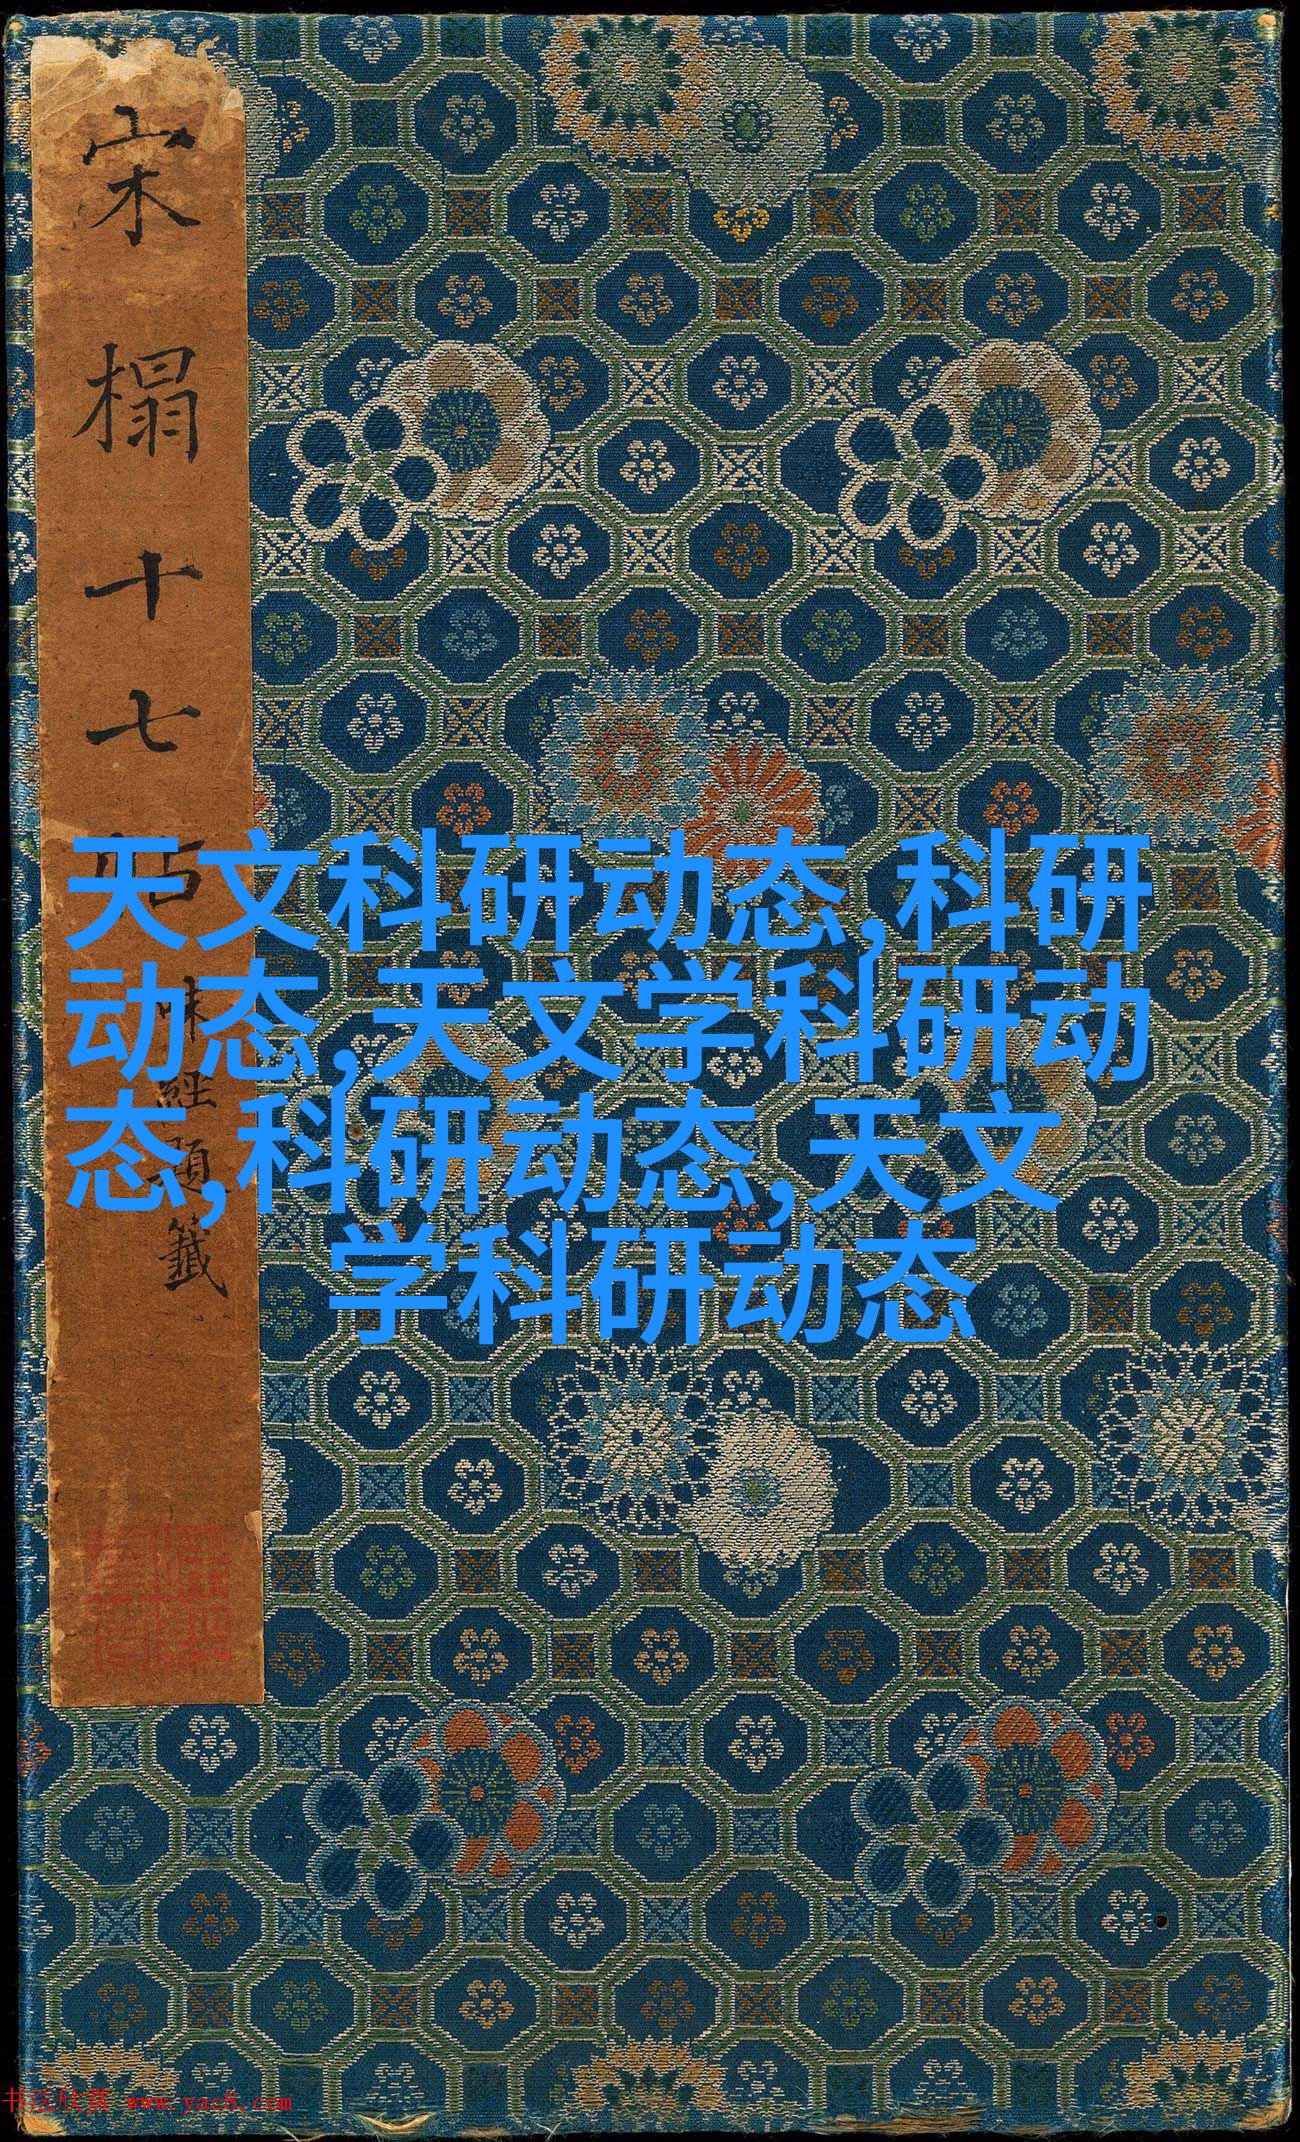 宋榻十七帖
味經題籤
天文科研动态,科研
动态,天文学科研动
态,科研动态,天文
学科研动态
书法欣赏 www.yac8.com